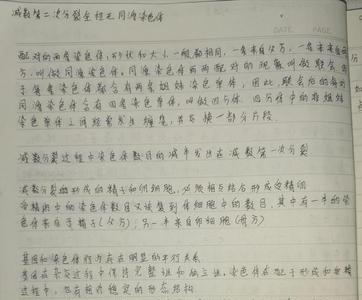 减数第二次分裂全程无同源染色体
DATE PAGE
配对的两条染色体，形状和大小一般都相同，一条来自父方，一条来自母
方，叫做同源染色体。同源染色体两两配对的现象叫做联会
于每条染色体都含有两条姐妹染色单体，因此，联会后的每对
同源染色体含有四条染色单体，叫做四分体。四分体中的非姐妹
染色单体之间经常发生缠绕，并交换一部分片段
减数分裂过程中染色体数目的减半发生在减数第一次分裂
减数分裂形成的精子和卵细胞，必须相互结合形成受精卵
受精卵中的染色体数目又恢复到体细胞中的数目，其中有一半的染
色体来自于精子（父方），另一半来自卵细胞（母方）
基因和染色体行为存在明显的平行关系
基因在杂交过程中保持完整性和独立性，染色体在配子形成和受精
过程中，也有相对稳定的形态结构